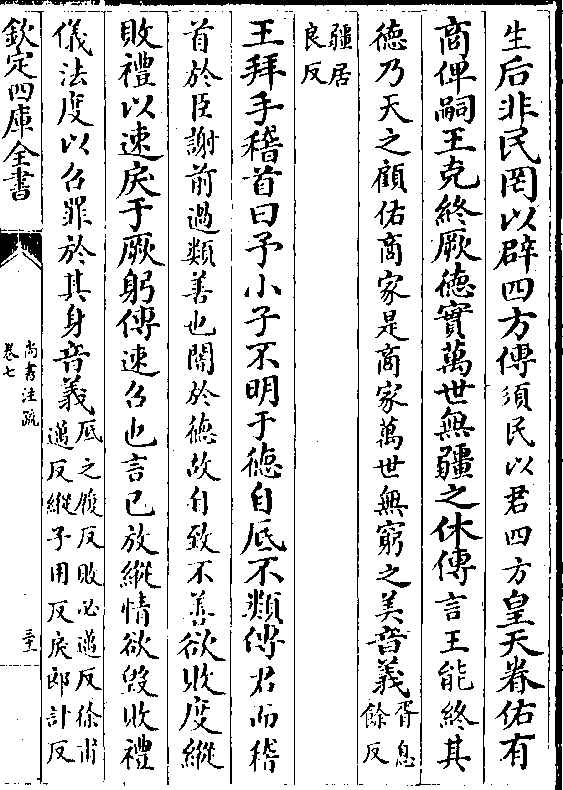 生后非民罔以辟四方傳須民以君四方皇天眷佑有
商俾嗣王克終厥德實萬世無疆之休傳言王能終其
德乃天之顧佑商家是商家萬世無窮之美音義胥息
餘反
疆居
良反
王拜手稽首曰予小子不明于德自厎不類傳君而稽
首於臣謝前過類善也闇於德故自致不善欲敗度縱
敗禮以速戾于厥躬傳速召也言已放縱情欲毁敗禮
儀法度以召罪於其身音義厎之履反敗必邁反徐甫
邁反縱子用反戾郎計反
欽定四庫全書
尚書注疏
卷七